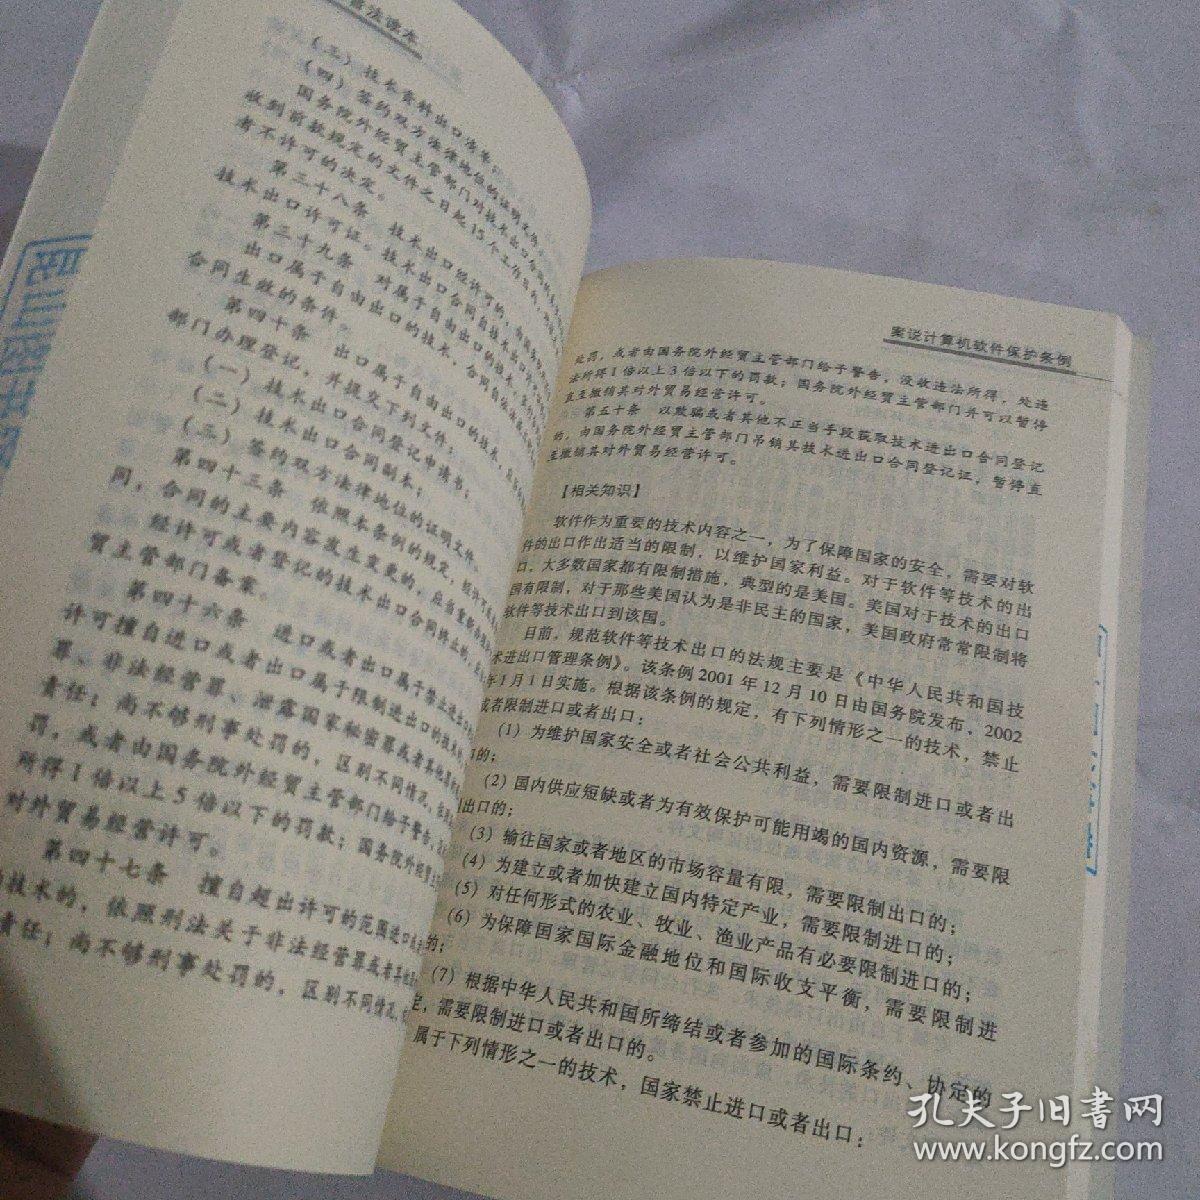 普法读本
（三）技术资料出口清单；
（四）签约双方法律地位的证明文件。
国务院外经贸主管部门对技术出口
收到前款规定的文件之日起15个工作日内，
者不许可的决定。
第三十八条 技术出口经许可的，由国务院
技术出口许可证。技术出口合同自技术出口
第三十九条 对属于自由出口的技术，
出口属于自由出口的技术，合同自依法
合同生效的条件。
第四十条 出口属于自由出口的技术，
部门办理登记，并提交下列文件：
（一）技术出口合同登记申请书；
（二）技术出口合同副本；
（三）签约双方法律地位的证明文件。
第四十三条 依照本条例的规定，经许可
同，合同的主要内容发生变更的，应当重新
经许可或者登记的技术出口合同终止的，
贸主管部门备案。
第四十六条 进口或者出口属于禁止进出口
许可擅自进口或者出口属于限制进出口的技术
罪、非法经营罪、泄露国家秘密罪或者其他
责任；尚不够刑事处罚的，区别不同情况，
罚，或者由国务院外经贸主管部门给予警告，
所得1倍以上5倍以下的罚款；国务院外经贸
对外贸易经营许可。
第四十七条 擅自超出许可的范围进口
的技术的，依照刑法关于非法经营罪或者其
责任；尚不够刑事处罚的，区别不同情况，
案说计算机软件保护条例
处罚，或者由国务院外经贸主管部门给予警告，没收违法所得，处违
法所得1倍以上3倍以下的罚款；国务院外经贸主管部门并可以暂停
直至撤销其对外贸易经营许可。
第五十条 以欺骗或者其他不正当手段获取技术进出口合同登记
的，由国务院外经贸主管部门吊销其技术进出口合同登记证，暂停直
至撤销其对外贸易经营许可。
【相关知识】
软件作为重要的技术内容之一，为了保障国家的安全，需要对软
件的出口作出适当的限制，以维护国家利益。对于软件等技术的出
口，大多数国家都有限制措施，典型的是美国。美国对于技术的出口
国有限制，对于那些美国认为是非民主的国家，美国政府常常限制将
软件等技术出口到该国。
目前，规范软件等技术出口的法规主要是《中华人民共和国技
术进出口管理条例》。该条例2001年12月10日由国务院发布，2002
年1月1日实施。根据该条例的规定，有下列情形之一的技术，禁止
或者限制进口或者出口：
（1）为维护国家安全或者社会公共利益，需要限制进口或者出
口的；
（2）国内供应短缺或者为有效保护可能用竭的国内资源，需要限
制出口的；
（3）输往国家或者地区的市场容量有限，需要限制出口的；
（4）为建立或者加快建立国内特定产业，需要限制进口的；
（5）对任何形式的农业、牧业、渔业产品有必要限制进口的；
（6）为保障国家国际金融地位和国际收支平衡，需要限制进
口的；
（7）根据中华人民共和国所缔结或者参加的国际条约、协定的
定，需要限制进口或者出口的。
属于下列情形之一的技术，国家禁止进口或者出口：
孔夫子旧书网
www.kongfz.com